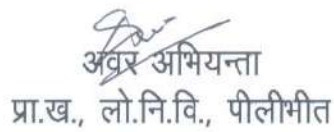 अवर अभियन्ता
प्रा.ख., लो.नि.वि., पीलीभीत